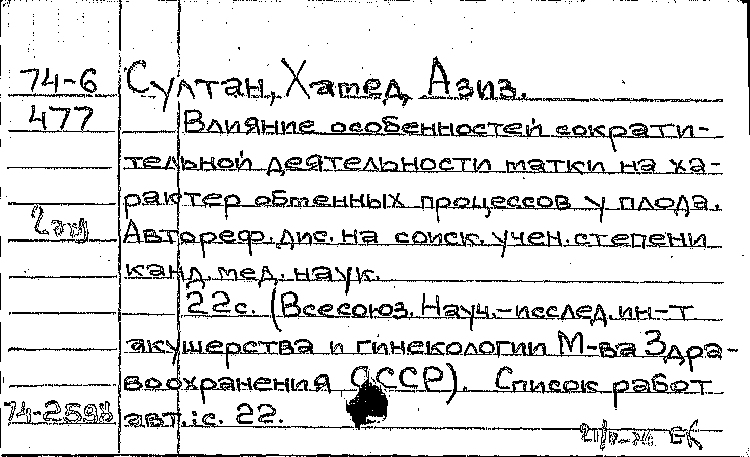 74-6 Султан, Хамед, Азиз.
477 Влияние особенностей сократи-
тельной деятельности матки на ха-
рактер обменных процессов у плода.
2 экз Автореф. дис. на соиск. учен. степени
канд. мед. наук.
22с. (Всесоюз. Науч.-исслед. ин-т
акушерства и гинекологии М-ва Здра-
воохранения СССР). Список работ
74-2598 авт.: с. 22.
ЕК